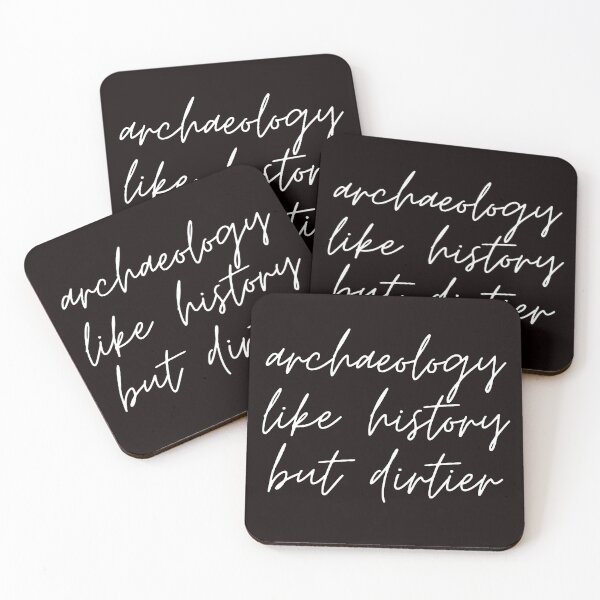 archaeology
like histor
archaeology
like history
but dirtier
archaeology
like history
but dirt
archaeology
like history
but dirtier